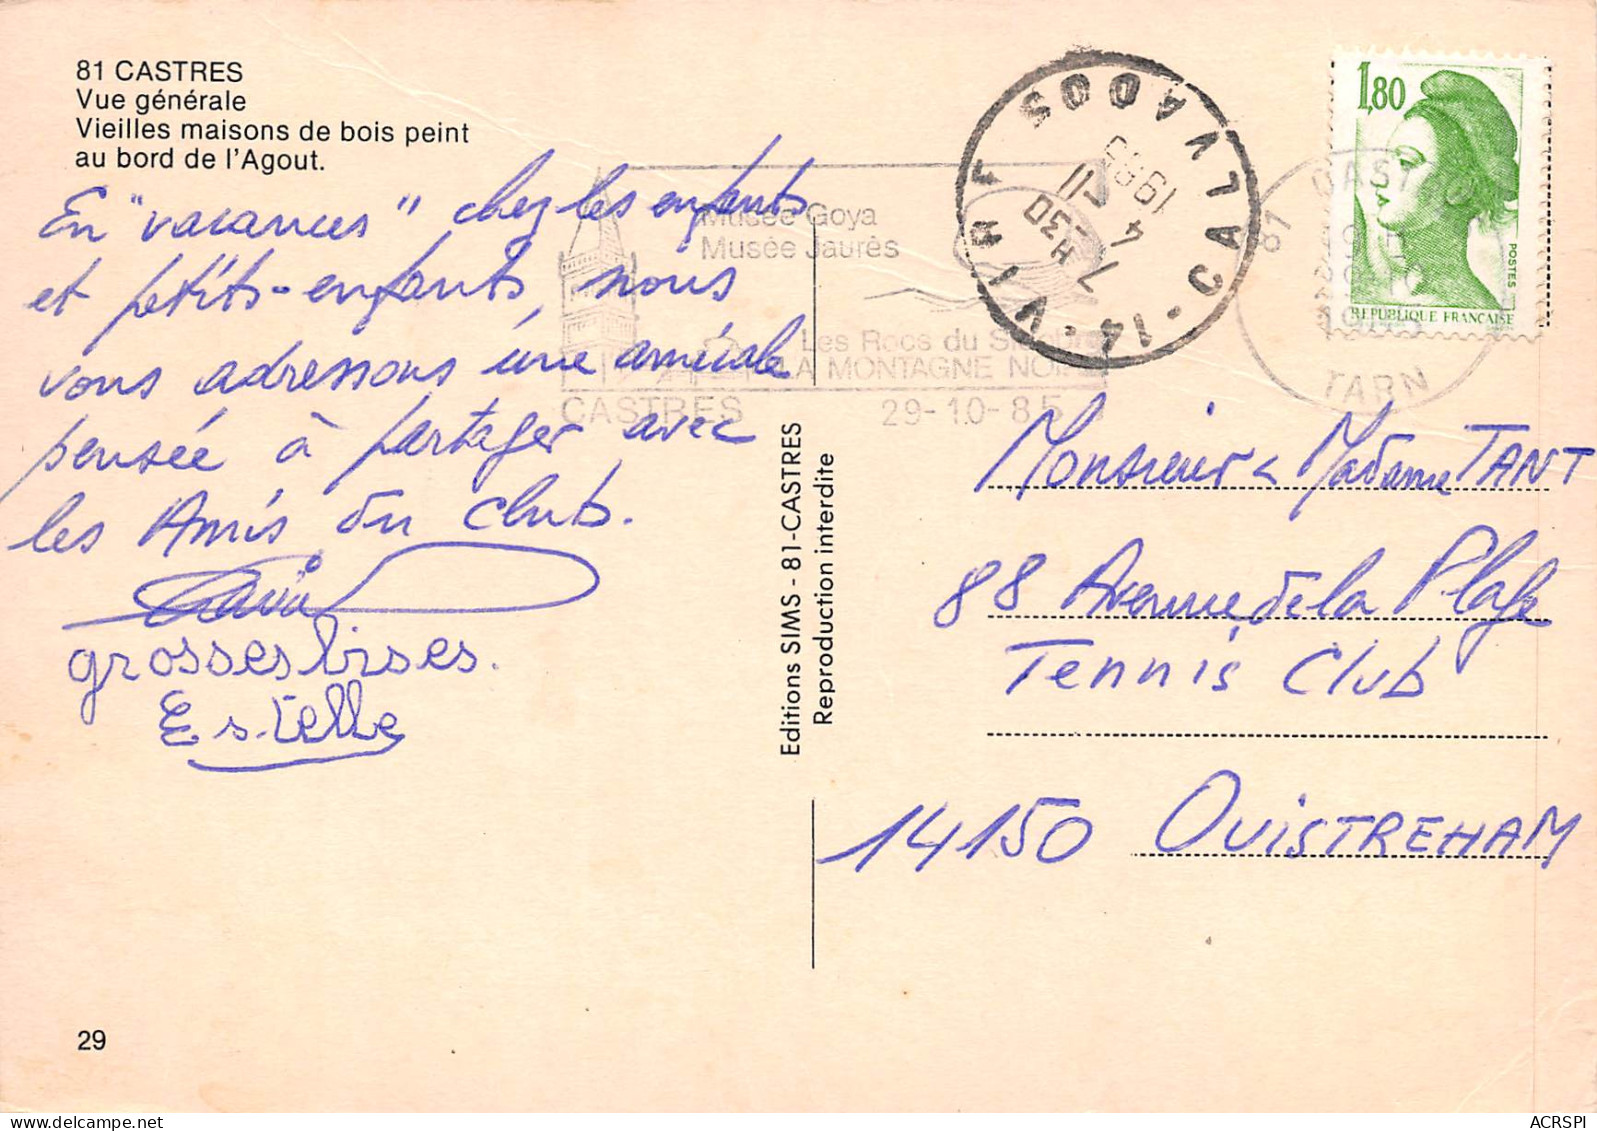 81 CASTRES
Vue générale
Vieilles maisons de bois peint
au bord de l'Agout.
En "vacances" chez les enfants
et petits-enfants, nous
vous adressons une amicale
pensée à partager avec
les Amis du club.
grosses bises.
Estelle
29
Editions SIMS - 81-CASTRES
Reproduction interdite
Musée Goya
Musée Jaurès
Les Rocs du
LA MONTAGNE
CASTRES
29-10-85
14 - VIRE CALVADOS
7 H 30
4 - 11
1985
81
TARN
1,80
POSTES
REPUBLIQUE FRANÇAISE
Monsieur & Madame TANT
88 Avenue de la Plage
Tennis Club
14150 OUISTREHAM
ACRSPI